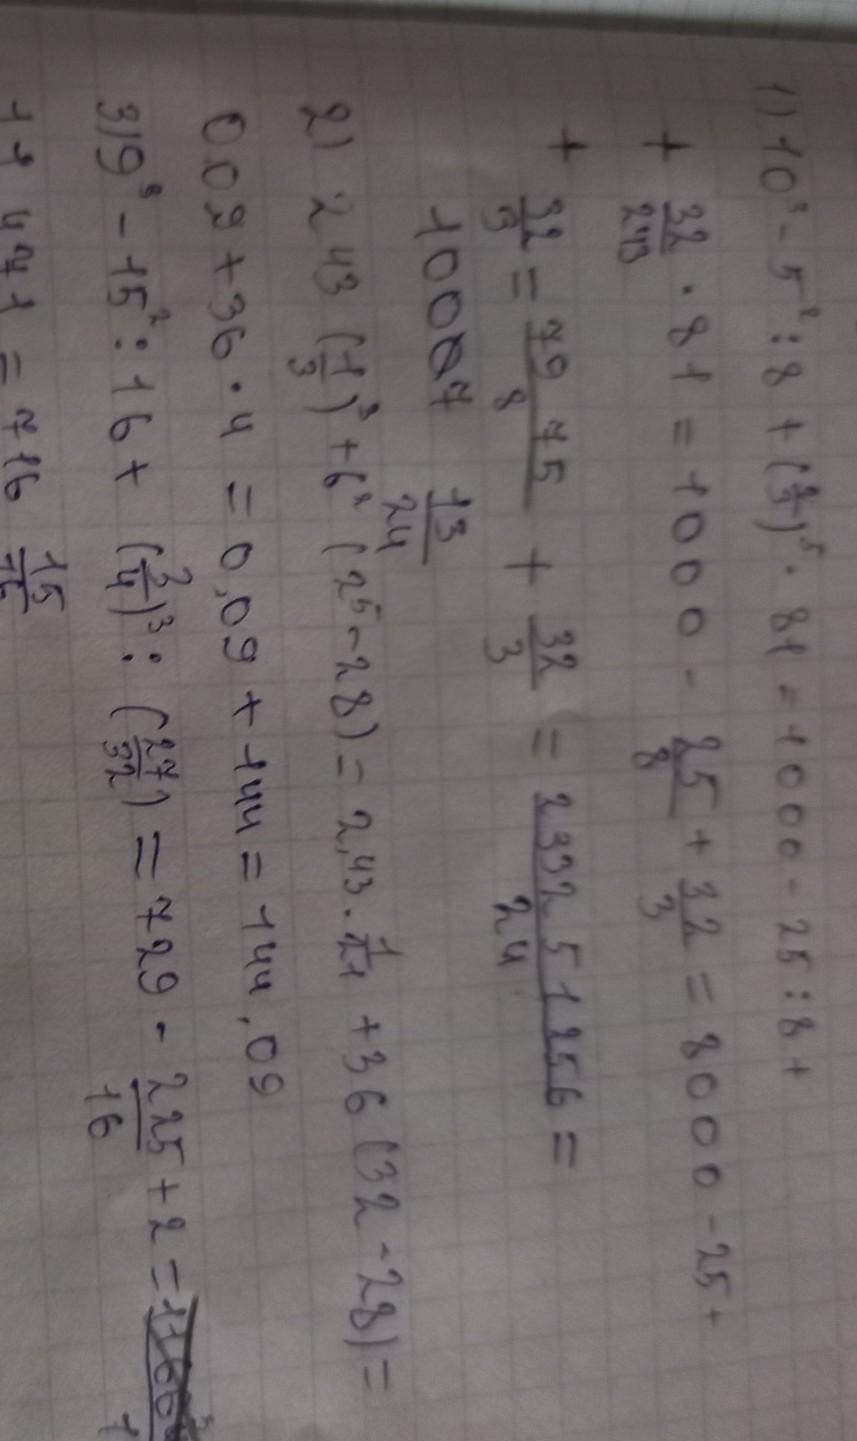 1) 10³ - 5² : 8 + (2/3)⁵ · 81 = 1000 - 25 : 8 +
+ 32/243 · 81 = 1000 - 25/8 + 32/3 = 8000 - 25 +
+ 32/3 = 7975/8 + 32/3 = =
1007 13/24
2) 243 (1/3)³ + 6² (2⁵ - 28) = 2,43 · + 36 (32 - 28) =
0,09 + 36 · 4 = 0,09 + 144 = 144,09
3) 9³ - 15² : 16 + (3/4)³ : (27/32) = 729 - 225/16 + 2 =
= 716 15/16